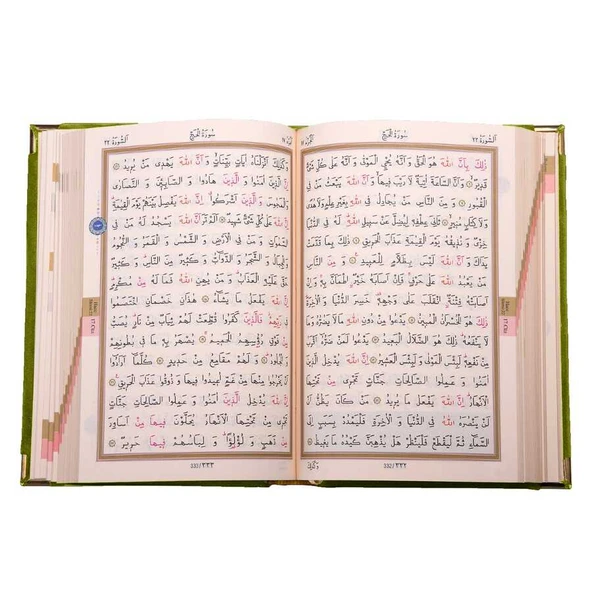 اَلسُّورَةُ ٢٢
سُورَةُ الْحَجِّ
ذٰلِكَ بِاَنَّ اللّٰهَ هُوَ الْحَقُّ وَاَنَّهُ يُحْيِ الْمَوْتٰى وَاَنَّهُ عَلٰى كُلِّ شَيْءٍ
قَدِيرٌ ۞ وَاَنَّ السَّاعَةَ اٰتِيَةٌ لَا رَيْبَ فِيهَا وَاَنَّ اللّٰهَ يَبْعَثُ مَنْ فِي
الْقُبُورِ ۞ وَمِنَ النَّاسِ مَنْ يُجَادِلُ فِي اللّٰهِ بِغَيْرِ عِلْمٍ وَلَا هُدًى
وَلَا كِتَابٍ مُنِيرٍ ۞ ثَانِيَ عِطْفِهِ لِيُضِلَّ عَنْ سَبِيلِ اللّٰهِ لَهُ فِي الدُّنْيَا
خِزْيٌ وَنُذِيقُهُ يَوْمَ الْقِيٰمَةِ عَذَابَ الْحَرِيقِ ۞ ذٰلِكَ بِمَا قَدَّمَتْ
يَدَاكَ وَاَنَّ اللّٰهَ لَيْسَ بِظَلَّامٍ لِلْعَبِيدِ ۞ وَمِنَ النَّاسِ
مَنْ يَعْبُدُ اللّٰهَ عَلٰى حَرْفٍ فَاِنْ اَصَابَهُ خَيْرٌ اطْمَاَنَّ بِهِ وَاِنْ
اَصَابَتْهُ فِتْنَةٌ انْقَلَبَ عَلٰى وَجْهِهِ خَسِرَ الدُّنْيَا وَالْاٰخِرَةَ
ذٰلِكَ هُوَ الْخُسْرَانُ الْمُبِينُ ۞ يَدْعُوا مِنْ دُونِ اللّٰهِ مَا لَا يَضُرُّهُ وَمَا
لَا يَنْفَعُهُ ذٰلِكَ هُوَ الضَّلَالُ الْبَعِيدُ ۞ يَدْعُوا لَمَنْ ضَرُّهُ اَقْرَبُ
مِنْ نَفْعِهِ لَبِئْسَ الْمَوْلٰى وَلَبِئْسَ الْعَشِيرُ ۞ اِنَّ اللّٰهَ يُدْخِلُ الَّذِينَ
اٰمَنُوا وَعَمِلُوا الصَّالِحَاتِ جَنَّاتٍ تَجْرِي مِنْ تَحْتِهَا
الْاَنْهَارُ اِنَّ اللّٰهَ يَفْعَلُ مَا يُرِيدُ ۞ مَنْ كَانَ يَظُنُّ اَنْ
لَنْ يَنْصُرَهُ اللّٰهُ فِي الدُّنْيَا وَالْاٰخِرَةِ فَلْيَمْدُدْ بِسَبَبٍ اِلَى
السَّمَاءِ ثُمَّ لْيَقْطَعْ فَلْيَنْظُرْ هَلْ يُذْهِبَنَّ كَيْدُهُ مَا يَغِيظُ ۞
332/٣٣٢
وَكَذٰلِكَ
سُورَةُ الْحَجِّ
اَلسُّورَةُ ٢٢
وَكَذٰلِكَ اَنْزَلْنَاهُ اٰيَاتٍ بَيِّنَاتٍ وَاَنَّ اللّٰهَ يَهْدِي مَنْ يُرِيدُ ۞
اِنَّ الَّذِينَ اٰمَنُوا وَالَّذِينَ هَادُوا وَالصَّابِئِينَ وَالنَّصَارٰى
وَالْمَجُوسَ وَالَّذِينَ اَشْرَكُوا اِنَّ اللّٰهَ يَفْصِلُ بَيْنَهُمْ يَوْمَ الْقِيٰمَةِ
اِنَّ اللّٰهَ عَلٰى كُلِّ شَيْءٍ شَهِيدٌ ۞ اَلَمْ تَرَ اَنَّ اللّٰهَ يَسْجُدُ لَهُ مَنْ فِي
السَّمٰوَاتِ وَمَنْ فِي الْاَرْضِ وَالشَّمْسُ وَالْقَمَرُ وَالنُّجُومُ
وَالْجِبَالُ وَالشَّجَرُ وَالدَّوَابُّ وَكَثِيرٌ مِنَ النَّاسِ وَكَثِيرٌ
حَقَّ عَلَيْهِ الْعَذَابُ وَمَنْ يُهِنِ اللّٰهُ فَمَا لَهُ مِنْ مُكْرِمٍ
اِنَّ اللّٰهَ يَفْعَلُ مَا يَشَاءُ ۞ هٰذَانِ خَصْمَانِ اخْتَصَمُوا
فِي رَبِّهِمْ فَالَّذِينَ كَفَرُوا قُطِّعَتْ لَهُمْ ثِيَابٌ مِنْ نَارٍ يُصَبُّ
مِنْ فَوْقِ رُؤُسِهِمُ الْحَمِيمُ ۞ يُصْهَرُ بِهِ مَا فِي بُطُونِهِمْ
وَالْجُلُودُ ۞ وَلَهُمْ مَقَامِعُ مِنْ حَدِيدٍ ۞ كُلَّمَا اَرَادُوا
اَنْ يَخْرُجُوا مِنْهَا مِنْ غَمٍّ اُعِيدُوا فِيهَا وَذُوقُوا عَذَابَ الْحَرِيقِ ۞
اِنَّ اللّٰهَ يُدْخِلُ الَّذِينَ اٰمَنُوا وَعَمِلُوا الصَّالِحَاتِ جَنَّاتٍ
تَجْرِي مِنْ تَحْتِهَا الْاَنْهَارُ يُحَلَّوْنَ فِيهَا مِنْ اَسَاوِرَ
مِنْ ذَهَبٍ وَلُؤْلُؤًا وَلِبَاسُهُمْ فِيهَا حَرِيرٌ ۞
333/٣٣٣